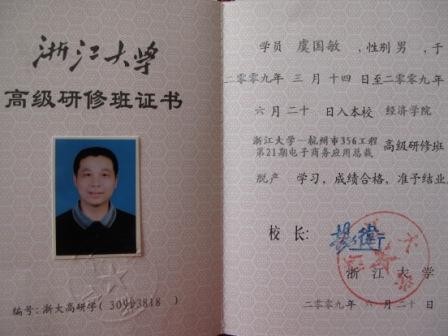 浙江大学
高级研修班证书
编号:浙大高研学(30993818)
学员 虞国敏,性别男,于
二〇〇九年 三月十四日至二〇〇九年
六月二十日入本校 经济学院
浙江大学—杭州市356工程
第21期电子商务应用总裁 高级研修班
脱产 学习,成绩合格,准予结业
校长:
浙江大学
二〇〇九年 六月二十日